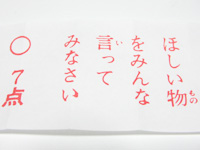 ほしい物
をみんな
言って
みなさい
○7点